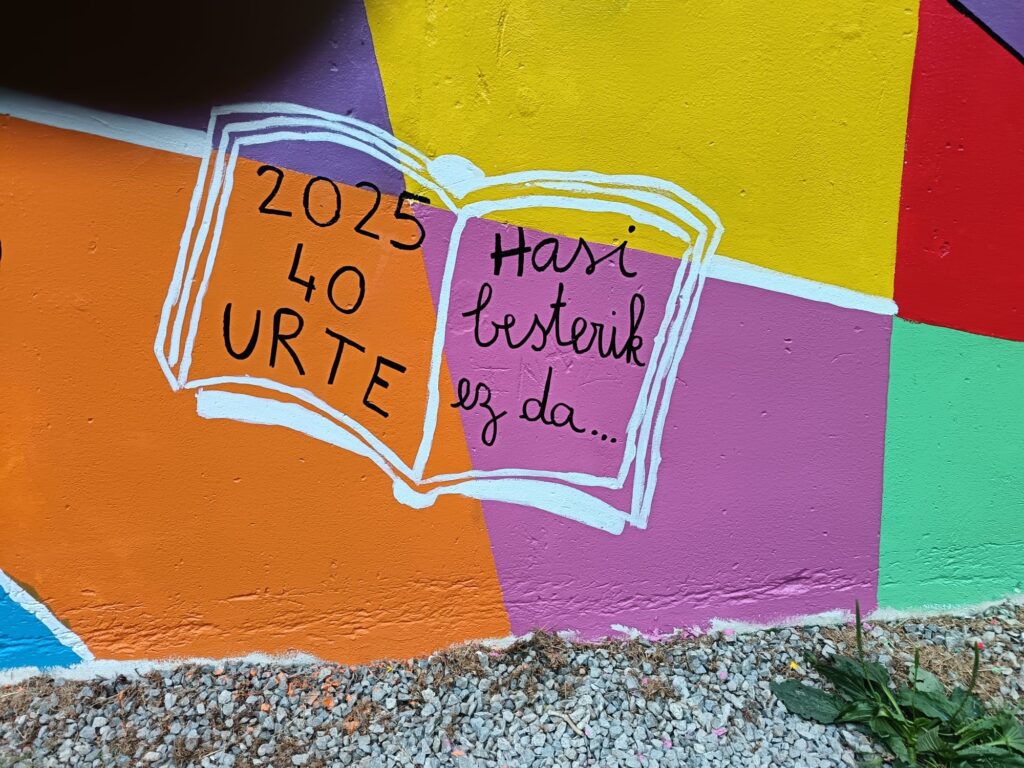 2025
40
URTE
Hasi
besterik
ez da...